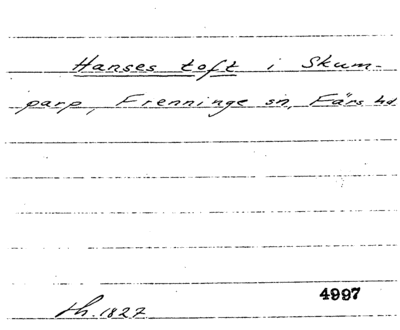 Hanses toft i Skum-
parp, Frenninge sn, Färs hd
4997
th. 1827